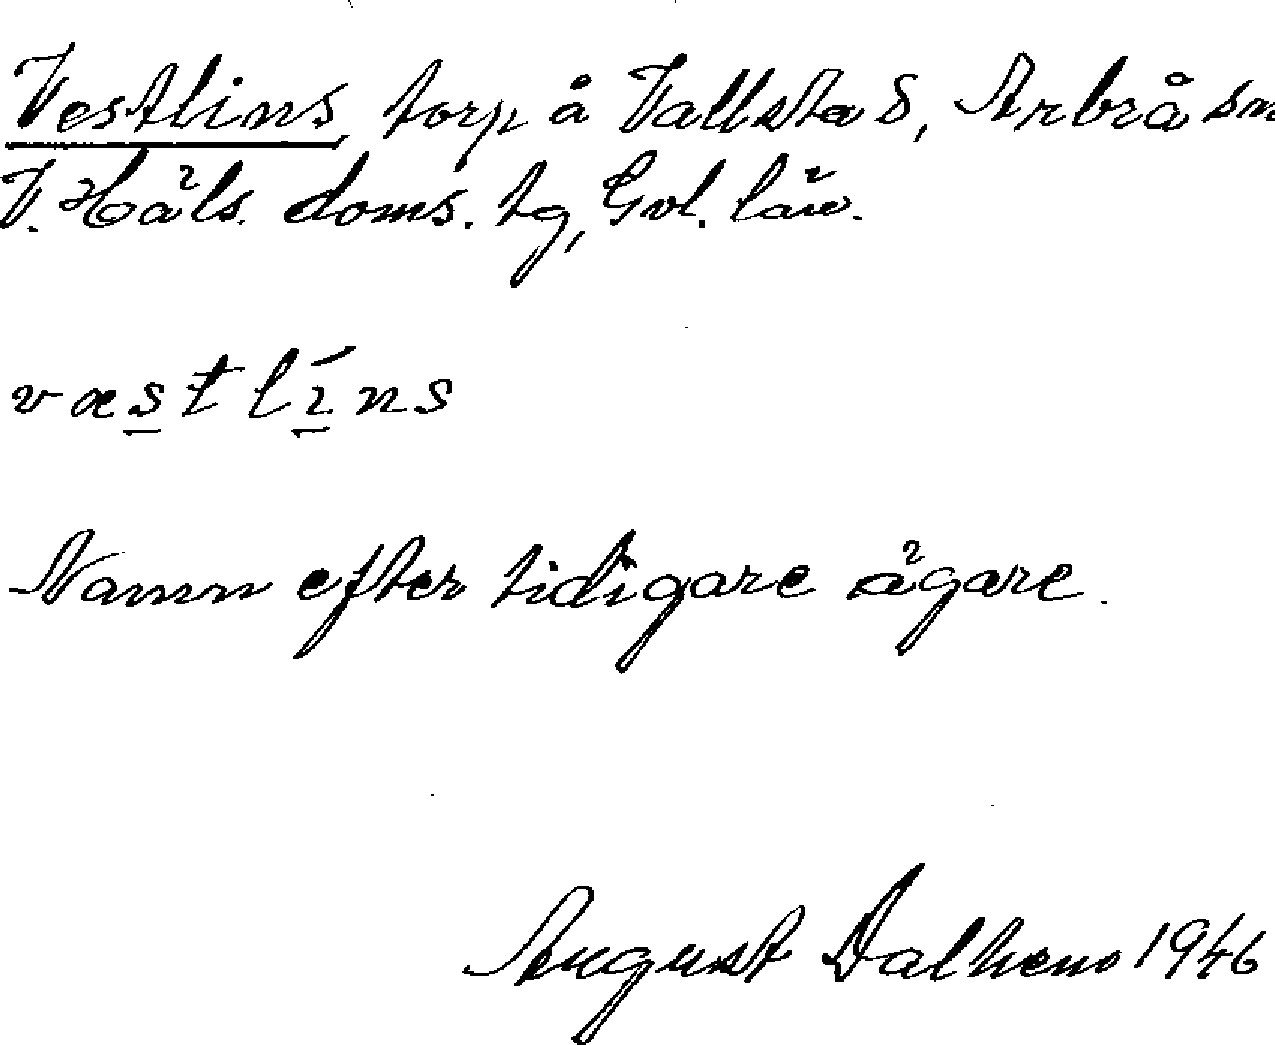 Vestlins, torp å Vallsta 8, Arbrå sn
V. Häls. doms. tg, Gvl. län.
væstlíns
Namn efter tidigare ägare.
August 1946